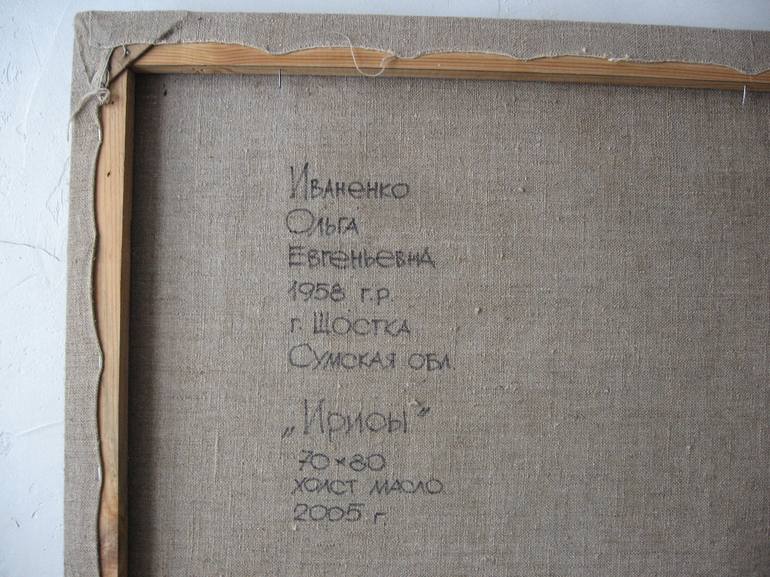 Иваненко
Ольга
Евгеньевна
1958 г.р.
г. Шостка
Сумская обл.
„Ирисы”
70×80
холст масло
2005 г.